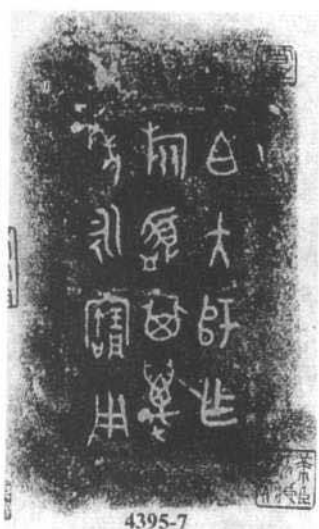 白大師乍
旅盨其萬
年永寶用
4395-7